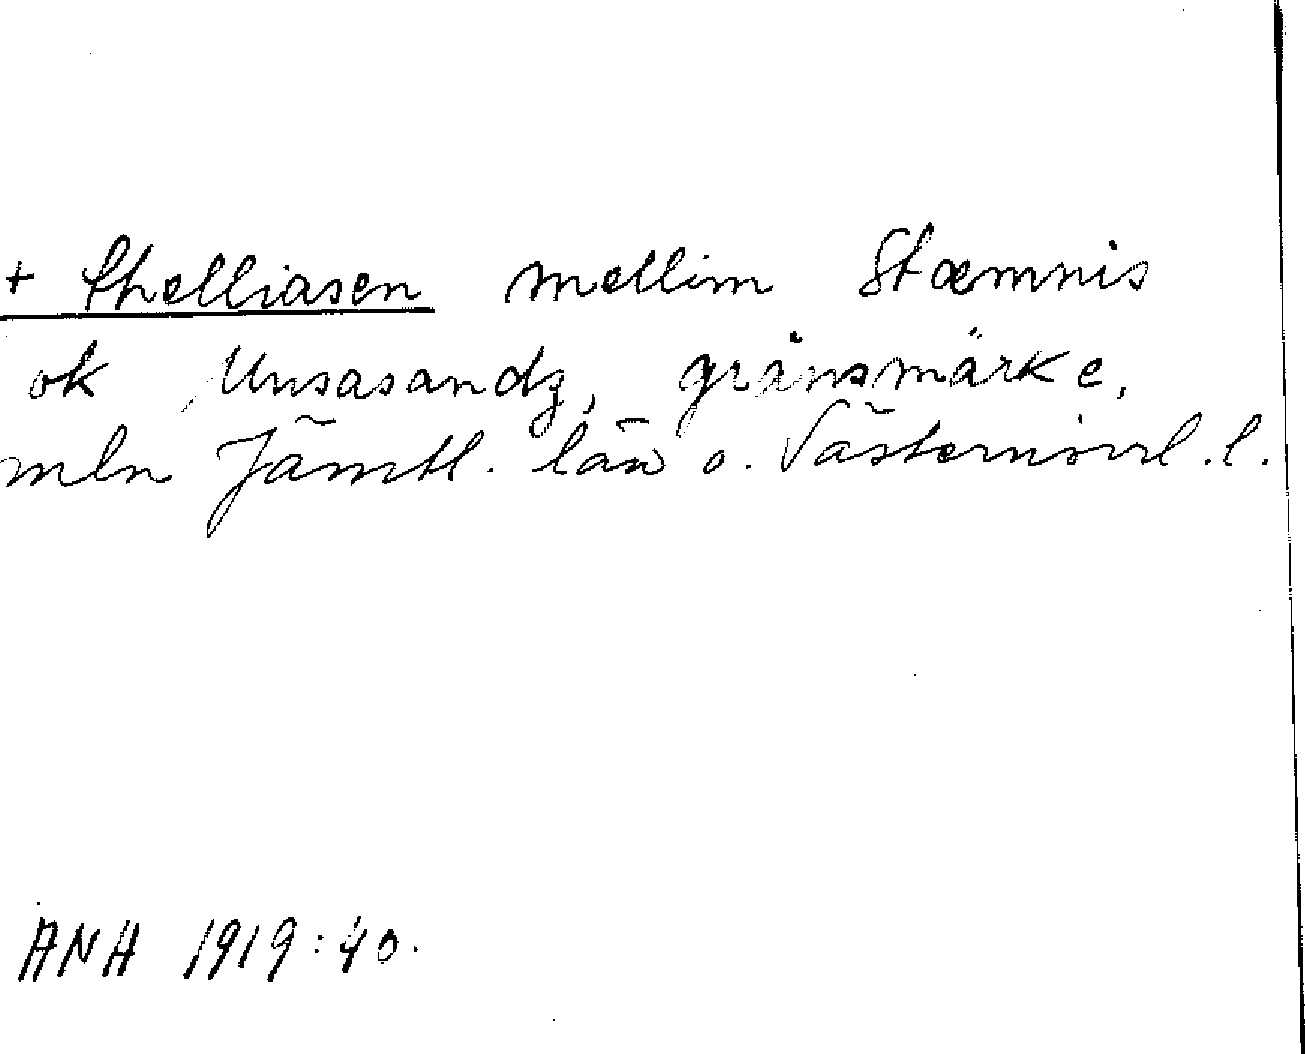 + Thelliasen mellim Stæmnis
ok Unsasandz, gränsmärke,
mln Jämtl. län o. Västernorrl. l.
ANA 1919:40.